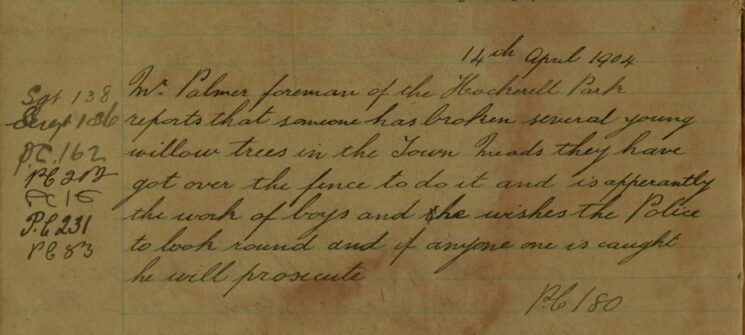 14th April 1904
Mr. Palmer foreman of the Hockerill Park
reports that someone has broken several young
willow trees in the Town Meads they have
got over the fence to do it and is apperantly
the work of boys and he wishes the Police
to look round and if anyone one is caught
he will prosecute
P.C 180
Sgt 138
Sergt 186
P.C. 162
PC 202
PC 15
P.C 231
PC 83